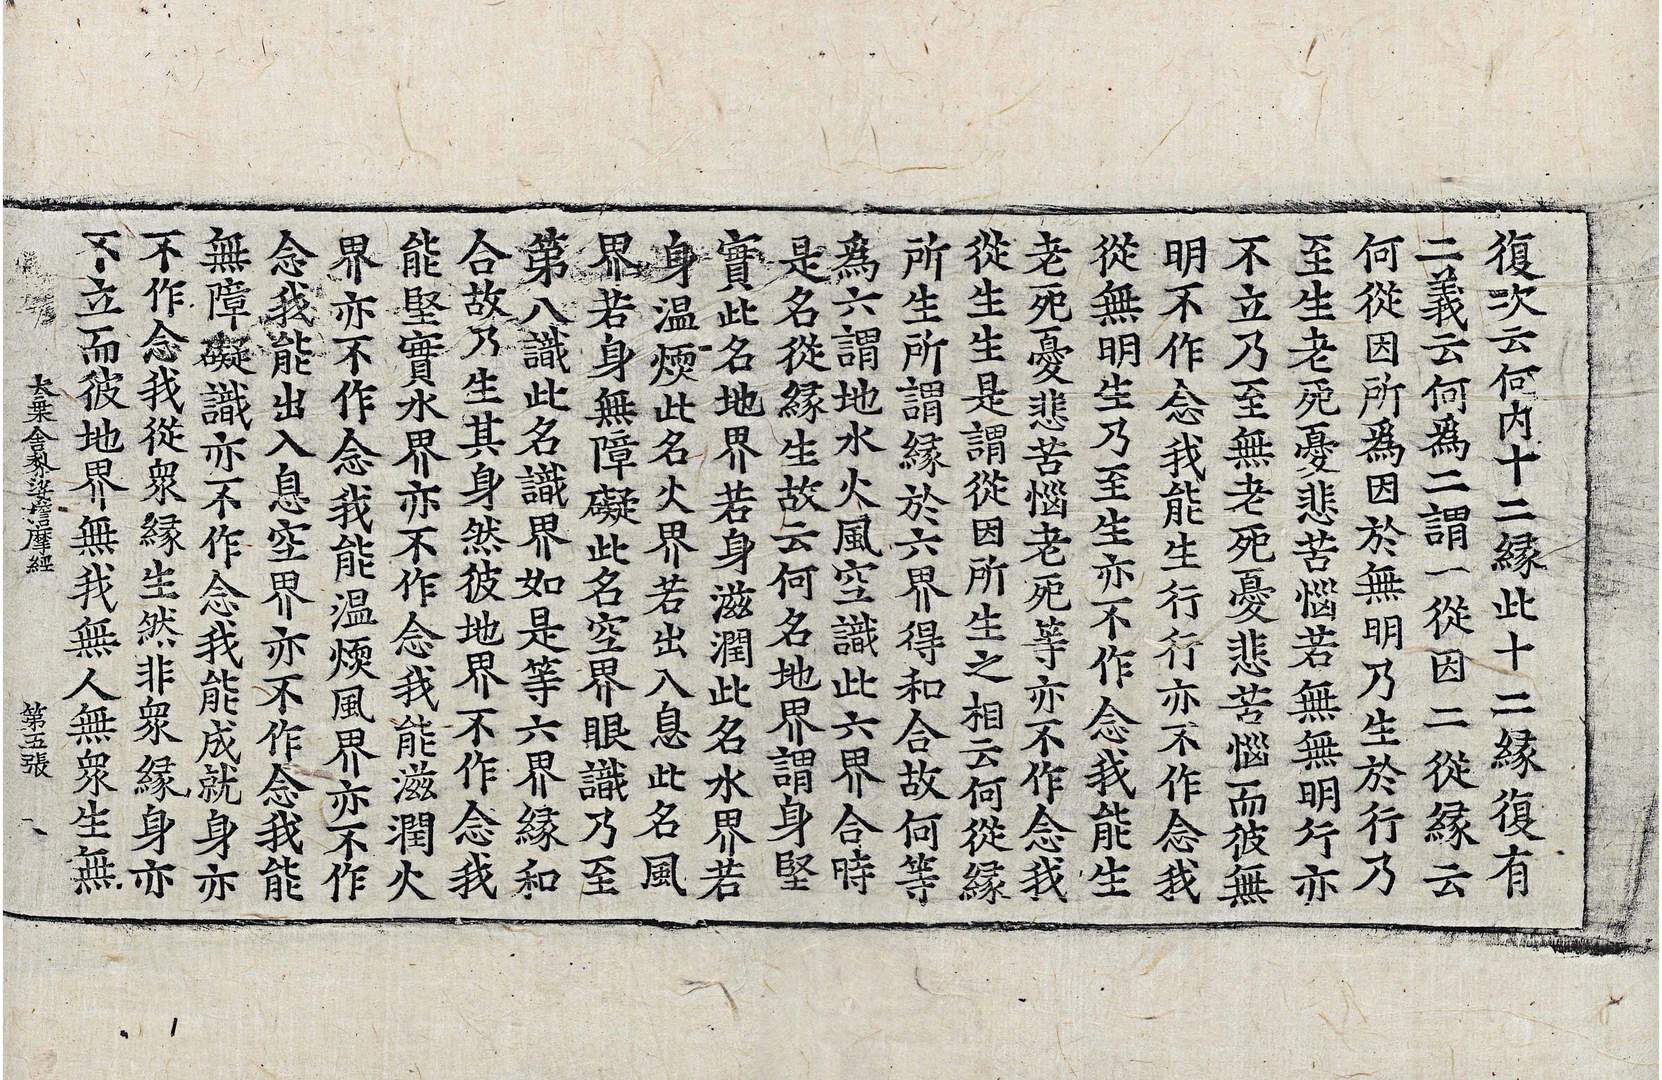 復次云何內十二緣此十二緣復有
二義云何爲二謂一從因二從緣云
何從因所爲因於無明乃生於行乃
至生老死憂悲苦惱若無無明行亦
不立乃至無老死憂悲苦惱而彼無
明不作念我能生行行亦不作念我
從無明生乃至生亦不作念我能生
老死憂悲苦惱老死等亦不作念我
從生生是謂從因所生之相云何從緣
所生所謂緣於六界得和合故何等
爲六謂地水火風空識此六界合時
是名從緣生故云何名地界謂身堅
實此名地界若身滋潤此名水界若
身温煗此名火界若出入息此名風
界若身無障礙此名空界眼識乃至
第八識此名識界如是等六界緣和
合故乃生其身然彼地界不作念我
能堅實水界亦不作念我能滋潤火
界亦不作念我能温煗風界亦不作
念我能出入息空界亦不作念我能
無障礙識亦不作念我能成就身亦
不作念我從衆緣生然非衆緣身亦
不立而彼地界無我無人無衆生無
大乗舍黎娑擔摩經 第五張